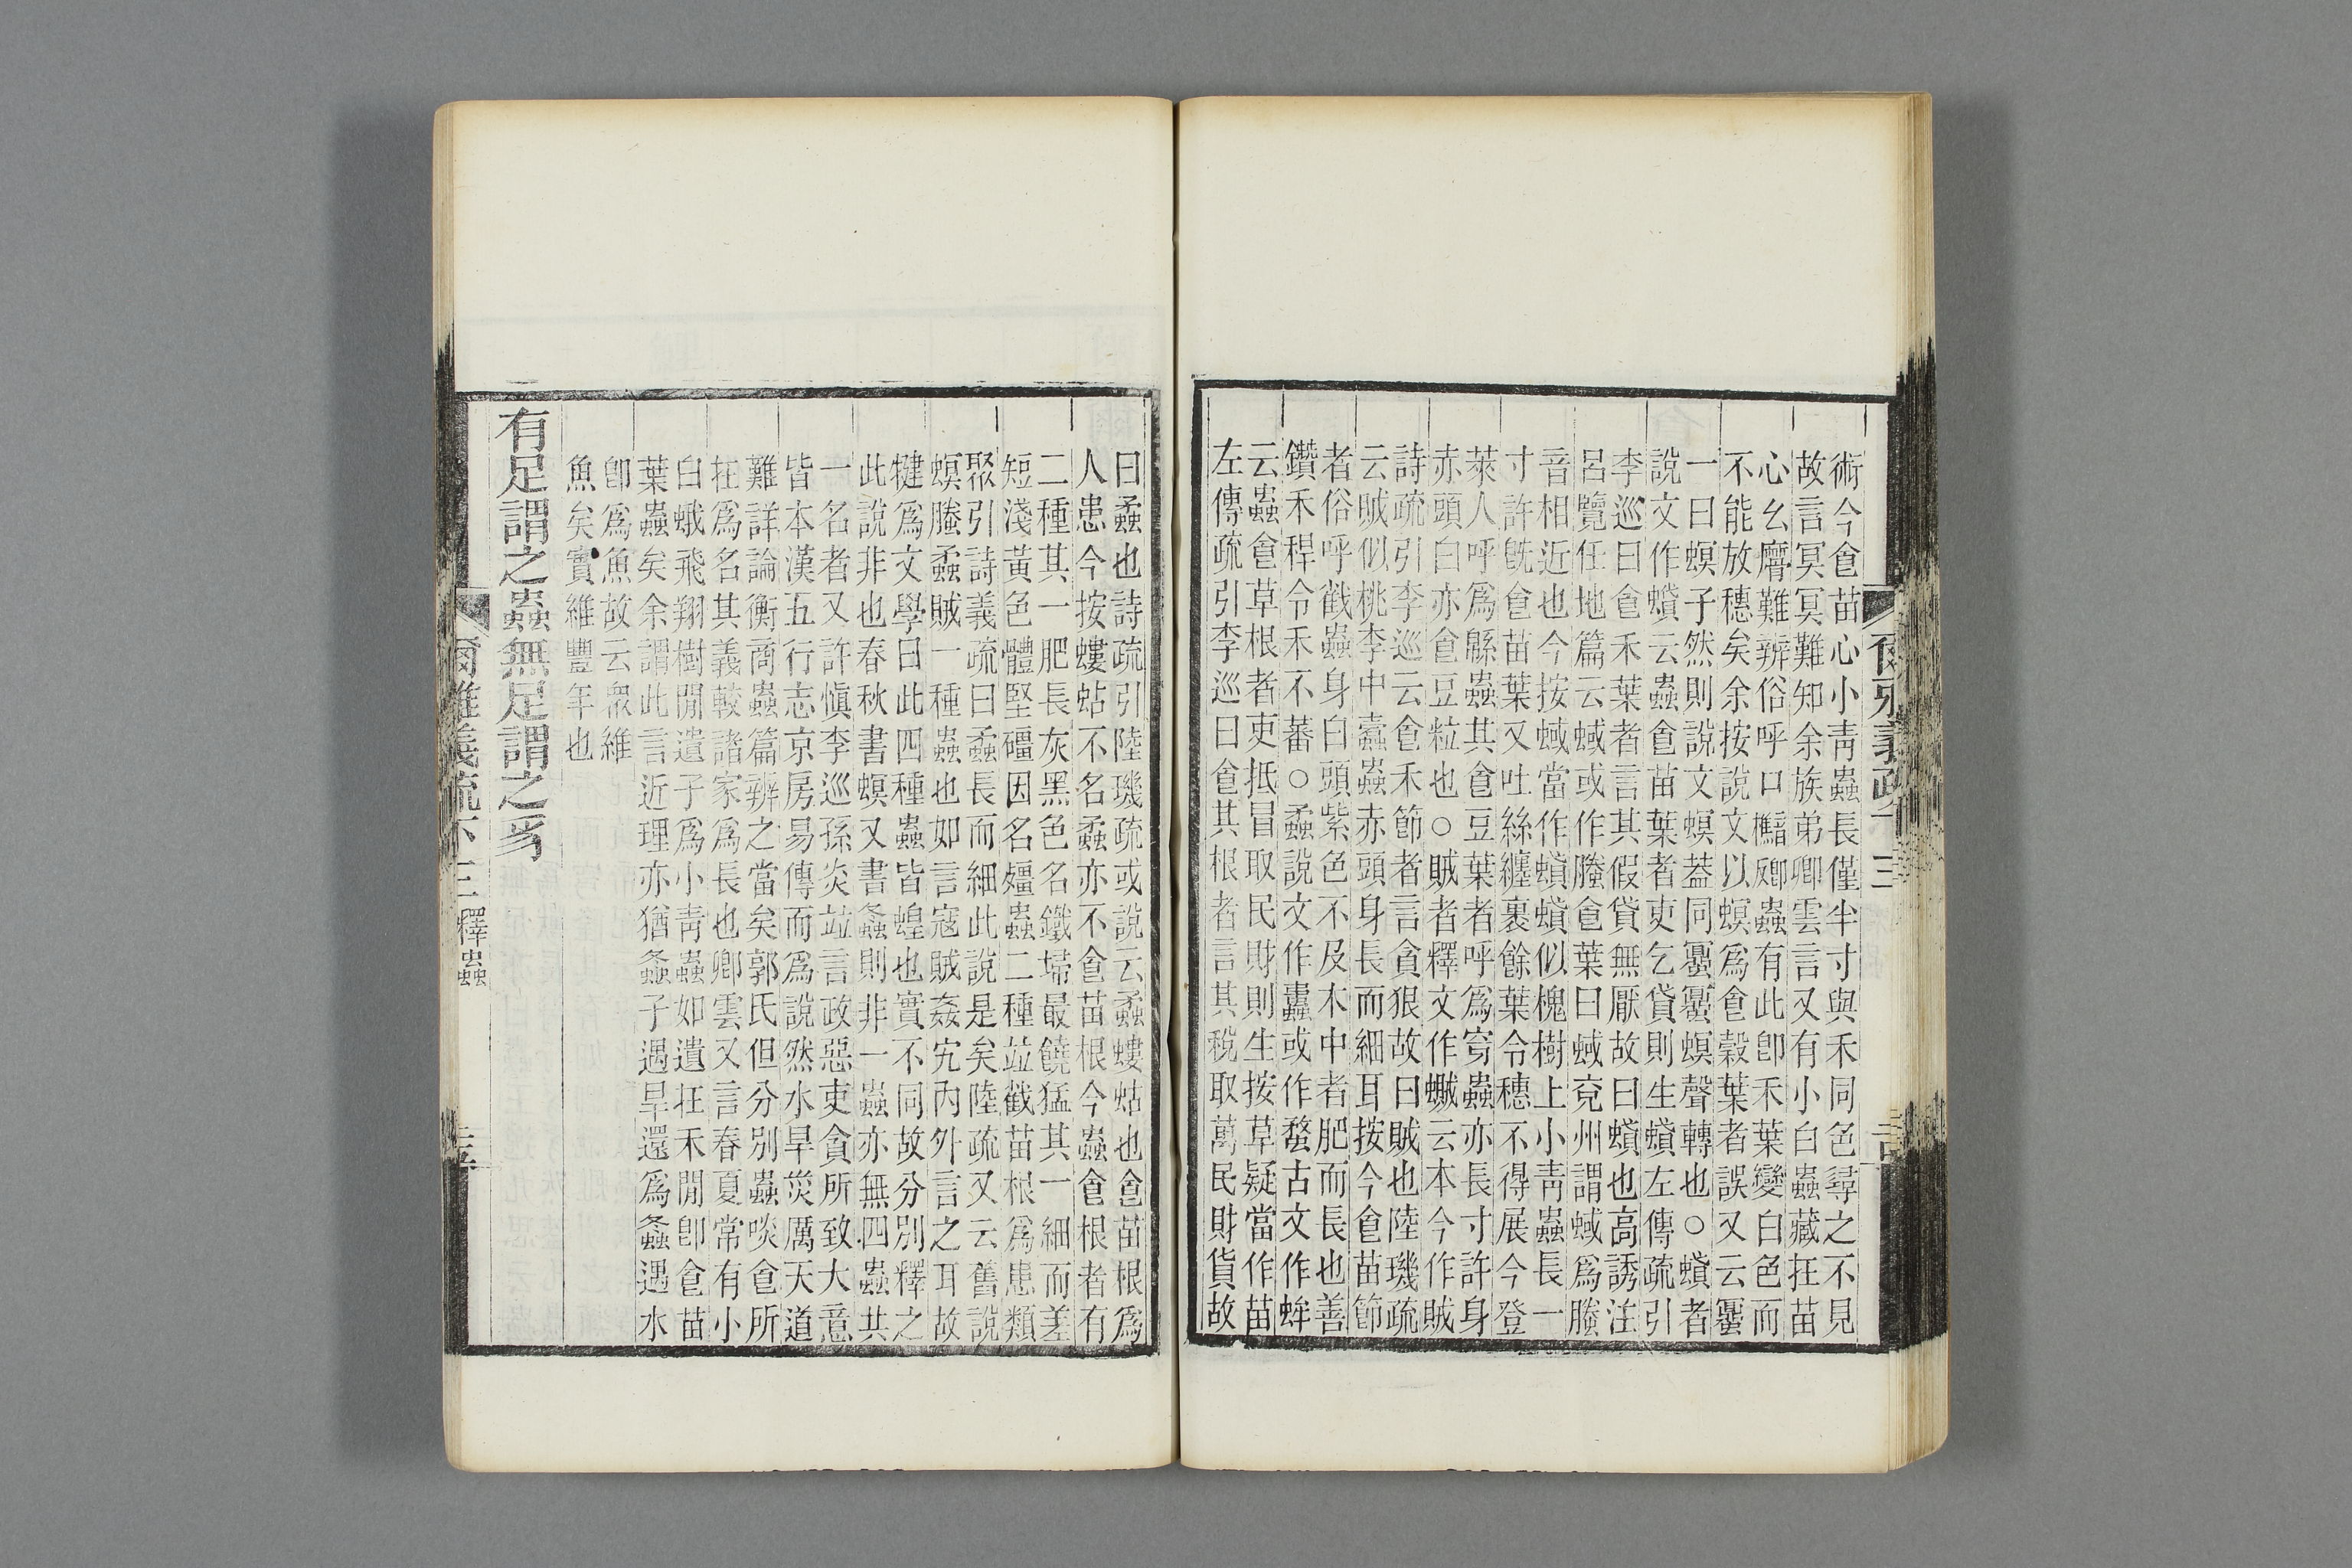 術今㑹苗心小靑蟲長僅半寸與禾同色尋之不見
故言冥冥難知余族弟卿雲言又有小白蟲藏在苗
心幺麿難辨俗呼口蟲有此卽禾葉變白色而
不能放穗矣余按說文以螟爲㑹穀葉者誤又云
一曰螟子然則說文螟葢同螟聲轉也○蟘者
說文作蟘云蟲㑹苗葉者吏乞貸則生蟘左傳疏引
李巡曰㑹禾葉者言其假貸無厭故曰蟘也高誘注
呂覽任地篇云蜮或作螣㑹葉曰蜮兗州謂蜮爲螣
音相近也今按蜮當作蟘蟘似槐樹上小靑蟲長一
寸許旣㑹苗葉又吐絲纏裹餘葉令穗不得展今登
萊人呼爲緜蟲其㑹豆葉者呼爲穷蟲亦長寸許身
赤頭白亦㑹豆粒也○賊者釋文作蠈云本今作賊
詩疏引李巡云㑹禾節者言貪狠故曰賊也陸璣疏
云賊似桃李中蠹蟲赤頭身長而細耳按今㑹苗節
者俗呼截蟲身白頭紫色不及木中者肥而長也善
鑽禾稈令禾不蕃○蟊說文作蟊或作蝥古文作蛑
云蟲㑹草根者吏抵冒取民財則生按草疑當作苗
左傳疏引李巡曰㑹其根者言其稅取萬民財貨故
爾雅義疏下三
曰蟊也詩疏引陸璣疏或說云蟊螻蛄也㑹苗根爲
人患今按螻蛄不名蟊亦不㑹苗根今蟲㑹根者有
二種其一肥長灰黑色名鐵埽最饒猛其一細而差
短淺黃色體堅礓因名蟲二種竝截苗根爲患類
聚引詩義疏曰蟊長而細此說是矣陸疏又云舊說
螟螣蟊賊一種蟲也如言寇賊姦宄內外言之耳故
犍爲文學曰此四種蟲皆蝗也實不同故分別釋之
此說非也春秋書螟又書螽則非一蟲亦無四蟲共
一名者又許愼李巡孫炎竝言政惡吏貪所致大意
皆本漢五行志京房易傳而爲說然水旱災厲天道
難詳論衡商蟲篇辨之當矣郭氏但分別蟲啖㑹所
在爲名其義較諸家爲長也卿雲又言春夏常有小
白蛾飛翔樹閒遺子爲小靑蟲如遺在禾閒卽㑹苗
葉蟲矣余謂此言近理亦猶螽子遇旱還爲螽遇水
卽爲魚故云衆維
魚矣實維豐年也
有足謂之蟲無足謂之豸
爾雅義疏下三 釋蟲